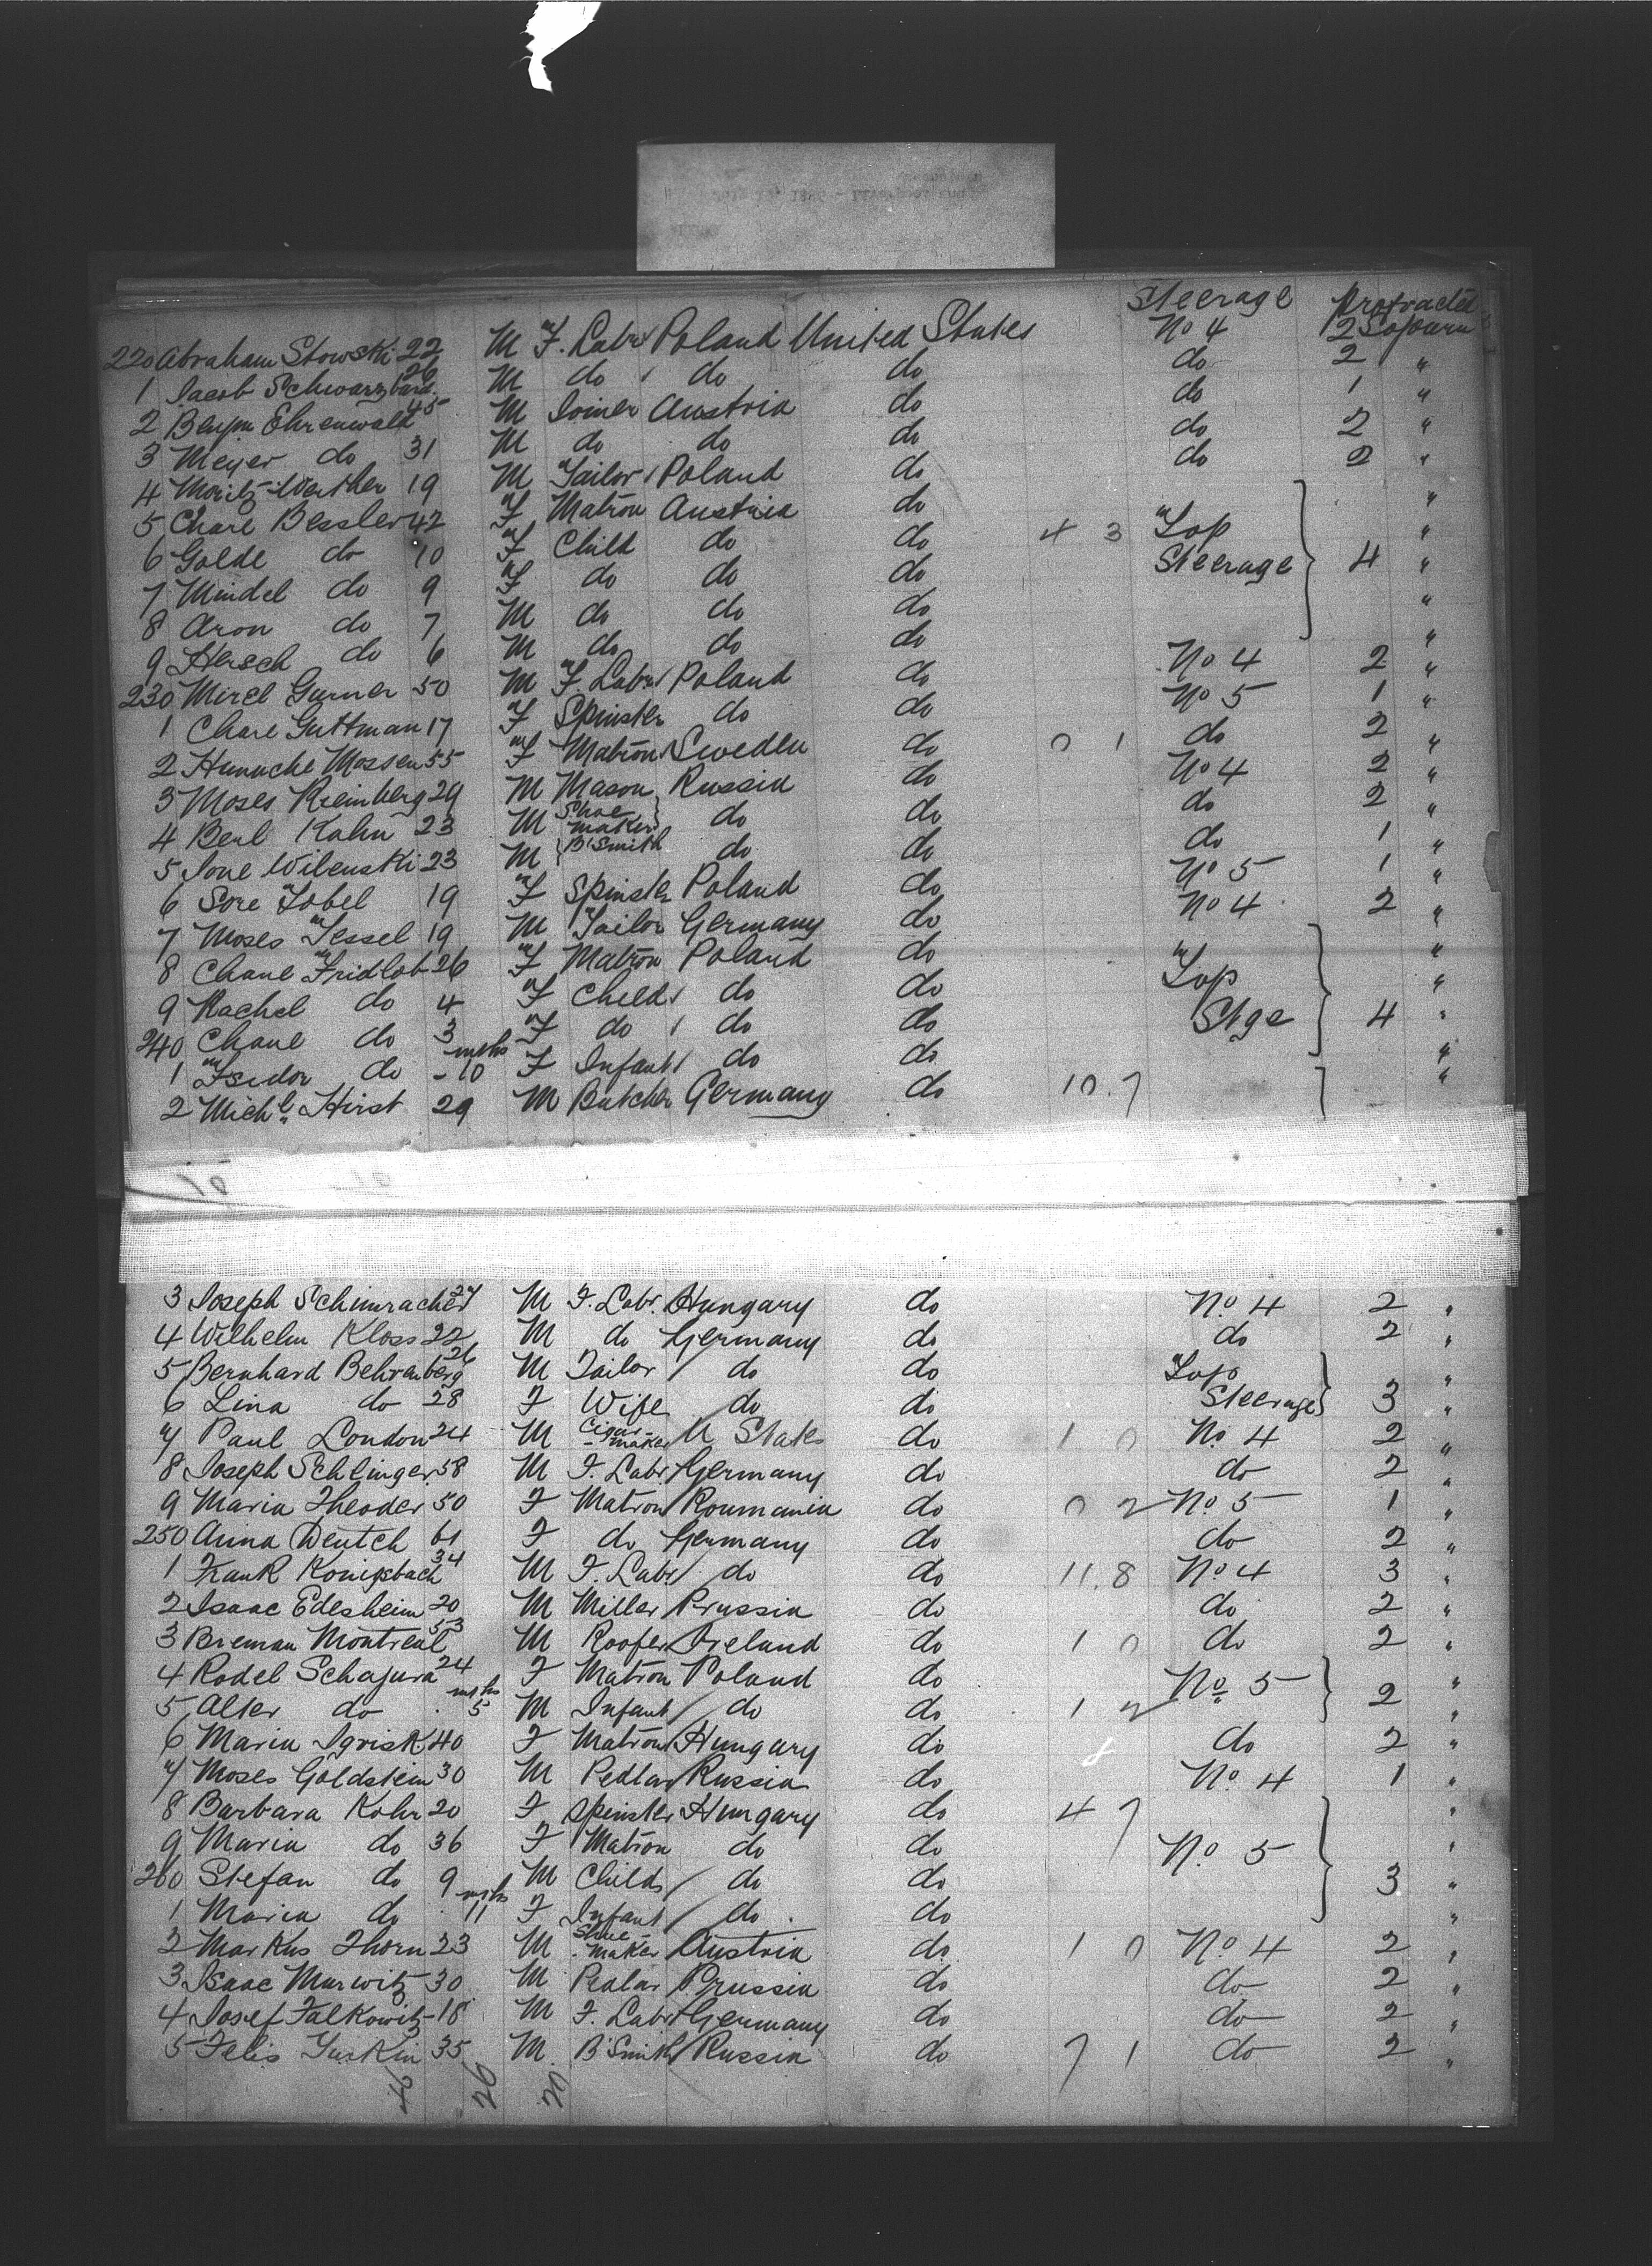 Steerage Protracted
220 Abraham Stowski 22 M F. Labr Poland United States No 4 2 Sojourn
1 Jacob Schwarzbard 26 M do do do do 2 "
2 Benjm Ehrenwald 45 M Joiner Austria do do 1 "
3 Meyer do 31 M do do do do 2 "
4 Moritz Werther 19 M Tailor Poland do do 2 "
5 Chare Bessler 42 F Matron Austria do "
6 Golde do 10 F Child do do 4 3 Top "
7 Mindel do 9 F do do do Steerage 4 "
8 Aron do 7 M do do do "
9 Hersch do 6 M do do do "
230 Mirel Gurner 50 M F. Labr Poland do No 4 2 "
1 Chare Guttman 17 F Spinster do do No 5 1 "
2 Hunuche Mossen 55 F Matron Sweden do 0 1 do 2 "
3 Moses Kreinberg 29 M Mason Russia do No 4 2 "
4 Berl Kahn 23 M Shoe maker do do do 2 "
5 Jone Wilenski 23 M B'Smith do do do 1 "
6 Sore Tobel 19 F Spinster Poland do No 5 1 "
7 Moses Tessel 19 M Tailor Germany do No 4 2 "
8 Chane Fridlob 26 F Matron Poland do "
9 Rachel do 4 F Child do do Top "
240 Chane do 3 F do do do Stge 4 "
1 Isidor do mths 10 F Infant do do "
2 Michl Hirst 29 M Butcher Germany do 10.7 "
3 Joseph Schimracher 27 M F. Labr. Hungary do No 4 2 "
4 Wilhelm Kloss 22 M do Germany do do 2 "
5 Bernhard Behrenberg 26 M Tailor do do Top "
6 Lina do 28 F Wife do do Steerage 3 "
7 Paul London 24 M Cigar-maker U States do 1 0 No 4 2 "
8 Joseph Schlinger 58 M F. Labr Germany do do 2 "
9 Maria Theoder 50 F Matron Roumania do 0 2 No 5 1 "
250 Anna Deutch 61 F do Germany do do 2 "
1 Frank Konigsbach 34 M F. Labr do do 11.8 No 4 3 "
2 Isaac Edesheim 20 M Miller Prussia do do 2 "
3 Breman Montreal 53 M Roofer Ireland do 1 0 do 2 "
4 Rodel Schajura 24 F Matron Poland do No 5 "
5 Alter do mths 5 M Infant do do 1 2 2 "
6 Maria Igrisk 40 F Matron Hungary do do 2 "
7 Moses Goldstein 30 M Pedlar Russia do No 4 1 "
8 Barbara Kohr 20 F Spinster Hungary do 4 7 "
9 Maria do 36 F Matron do do No 5 "
260 Stefan do 9 M Child do do 3 "
1 Maria do mths 11 F Infant do do "
2 Markus Thorn 23 M Shoe-maker Austria do 1 0 No 4 2 "
3 Isaac Murwitz 30 M Pedlar Prussia do do 2 "
4 Josef Falkowitz 18 M F. Labr Germany do do 2 "
5 Felis Yurkin 35 M B'Smith Russia do 7 1 do 2 "
46 26 20